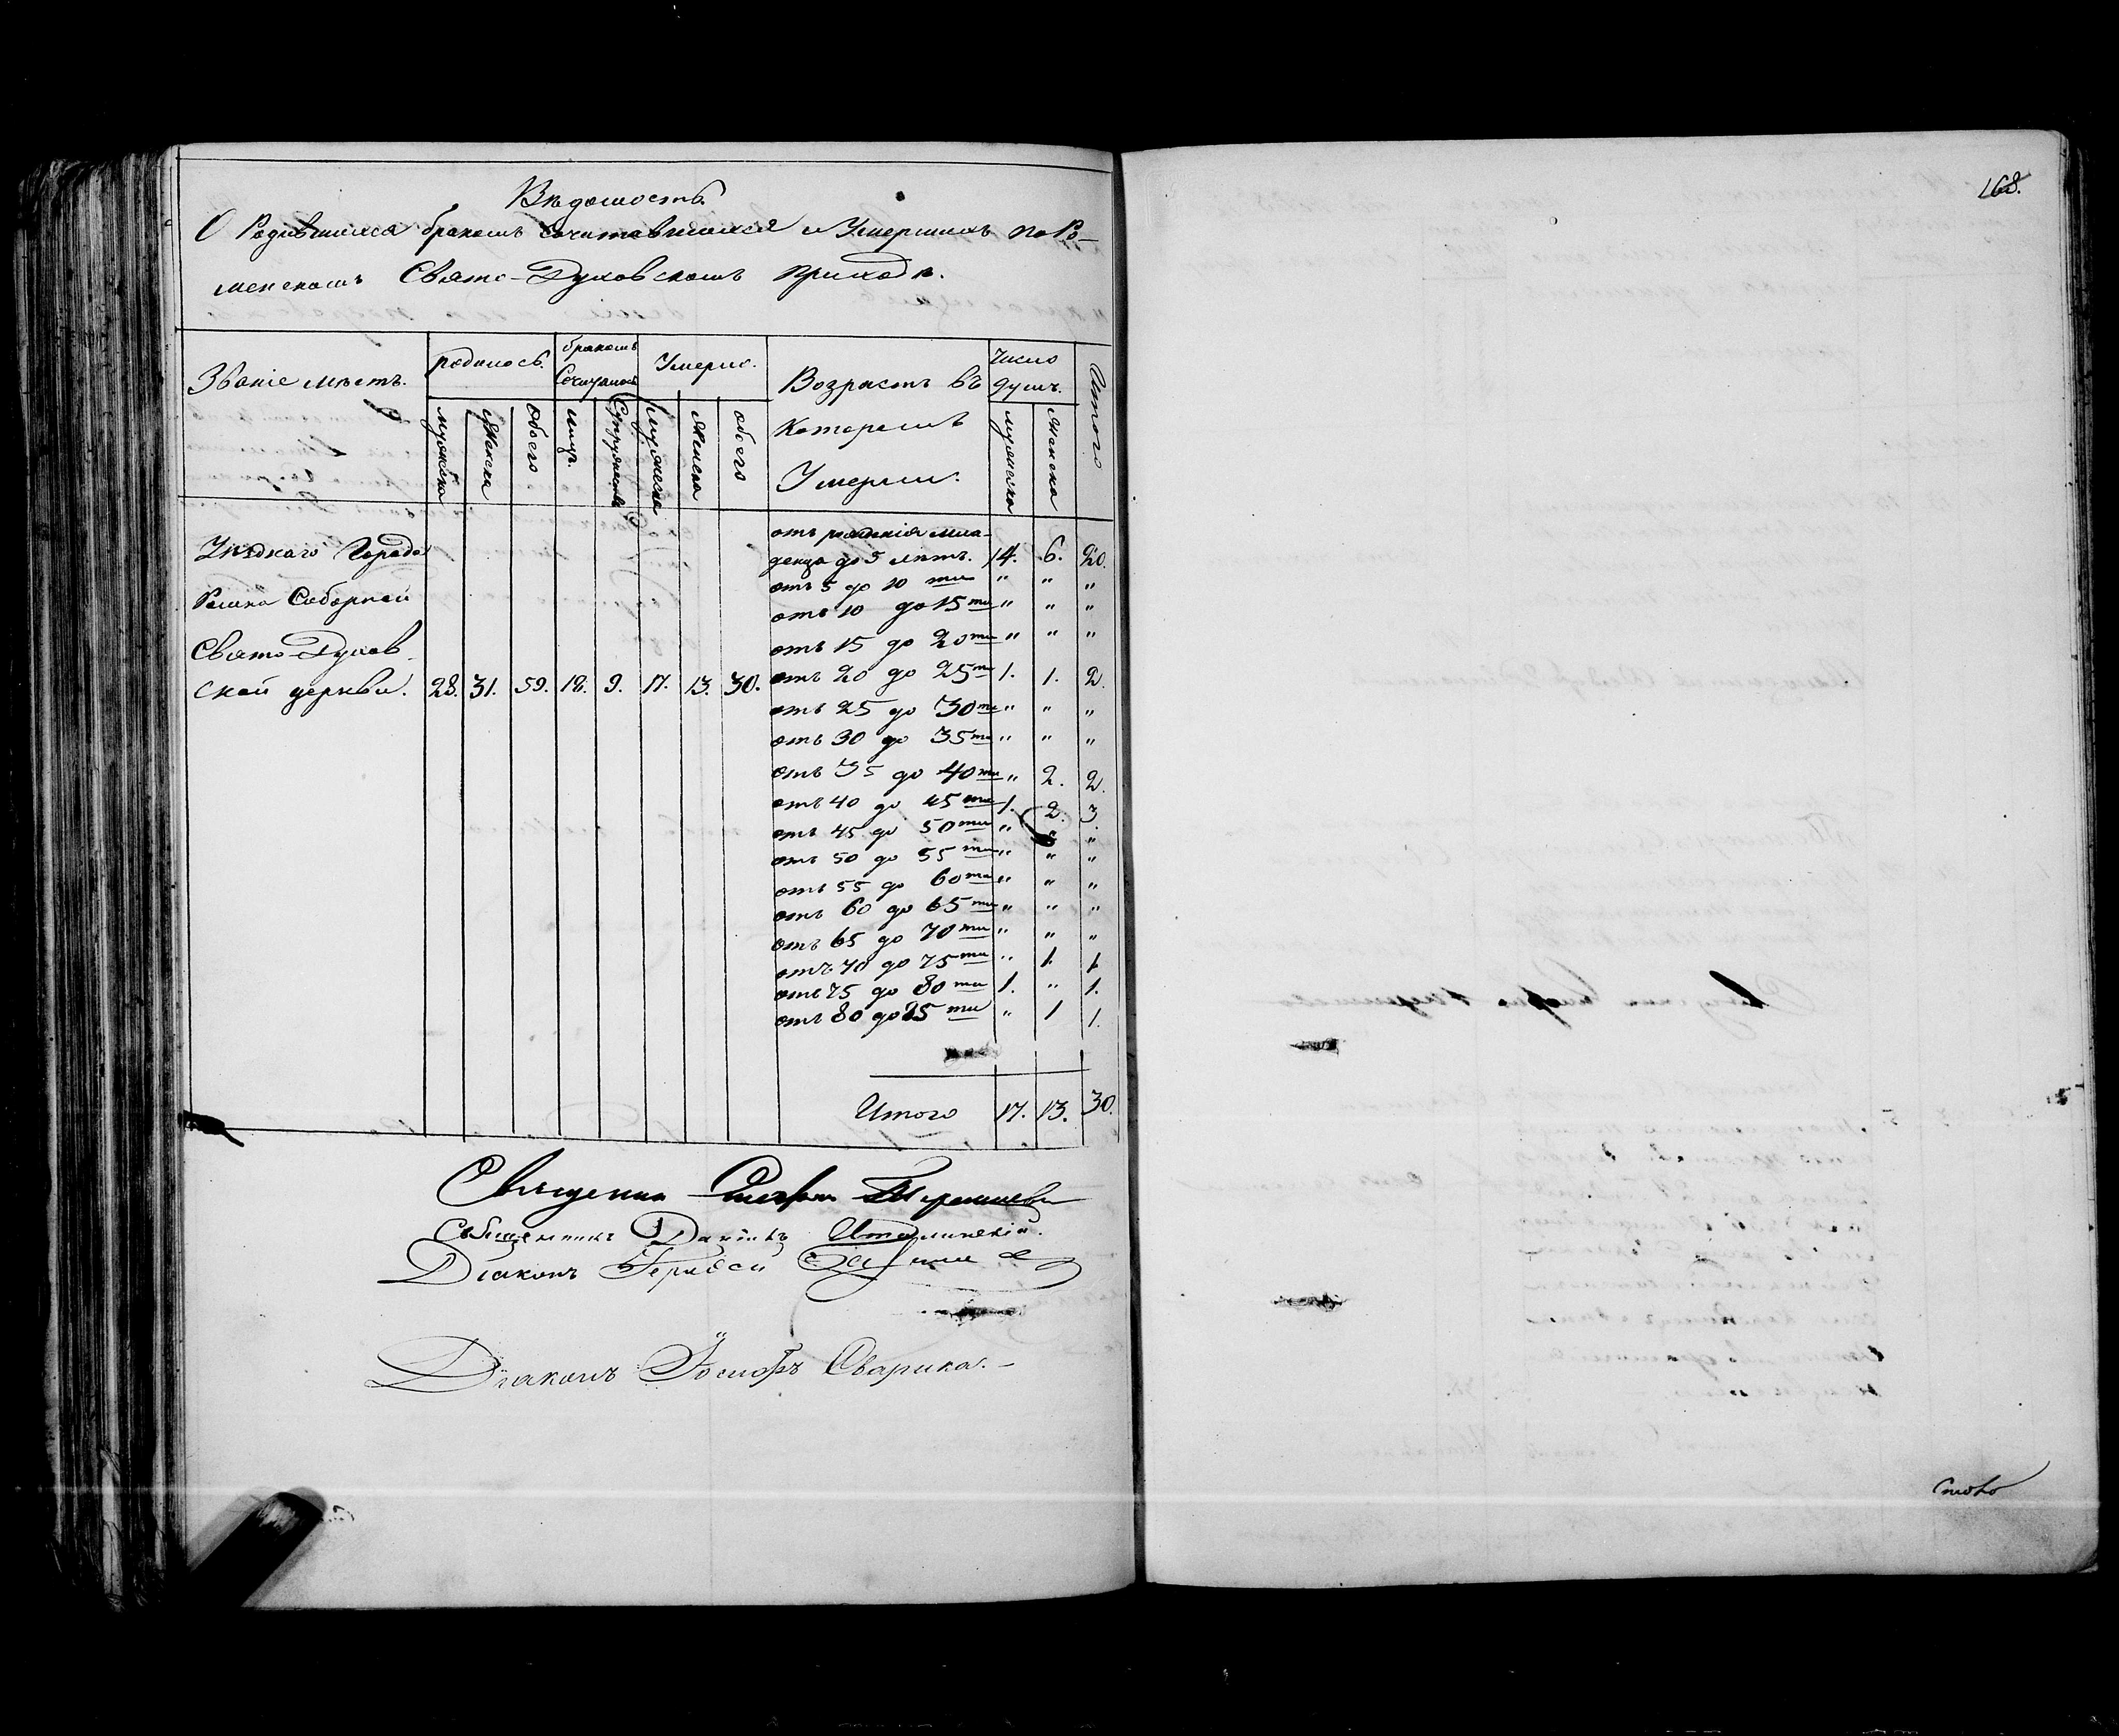 Вѣдомость
О Родившихся бракомъ Сочитавшихся и Умершихъ по Ро-
менскомъ Свято-Духовскомъ приходѣ.
Званіе мѣстъ.
родилось.
бракомъ
Сочиталось
Умерло.
Возрастъ въ
Которомъ
Умерли.
Число
душъ.
Итого
мужеска
Женска
Обоего
лицъ.
Супружествъ
мужеска
Женска
обоего
мужеска
женска
Уѣзднаго Города
Ромна Соборной
Свято-Духов-
ской церкви. 28. 31. 59. 18. 9. 17. 13. 30.
отъ рожденія мла-
денца до 5 лѣтъ. 14. 6. 20.
отъ 5 до 10 ти " " "
отъ 10 до 15 ти " " "
отъ 15 до 20 ти " " "
отъ 20 до 25 ти 1. 1. 2.
отъ 25 до 30 ти " " "
отъ 30 до 35 ти " " "
отъ 35 до 40 ти " 2. 2.
отъ 40 до 45 ти 1. 2. 3.
отъ 45 до 50 ти " " "
отъ 50 до 55 ти " " "
отъ 55 до 60 ти " " "
отъ 60 до 65 ти " " "
отъ 65 до 70 ти " " "
отъ 70 до 75 ти " 1. 1.
отъ 75 до 80 ти 1. " 1.
отъ 80 до 85 ти " 1 1.
Итого 17. 13. 30.
Священникъ
Священникъ
Діаконъ
Діаконъ Іосифъ Сварика.
168.